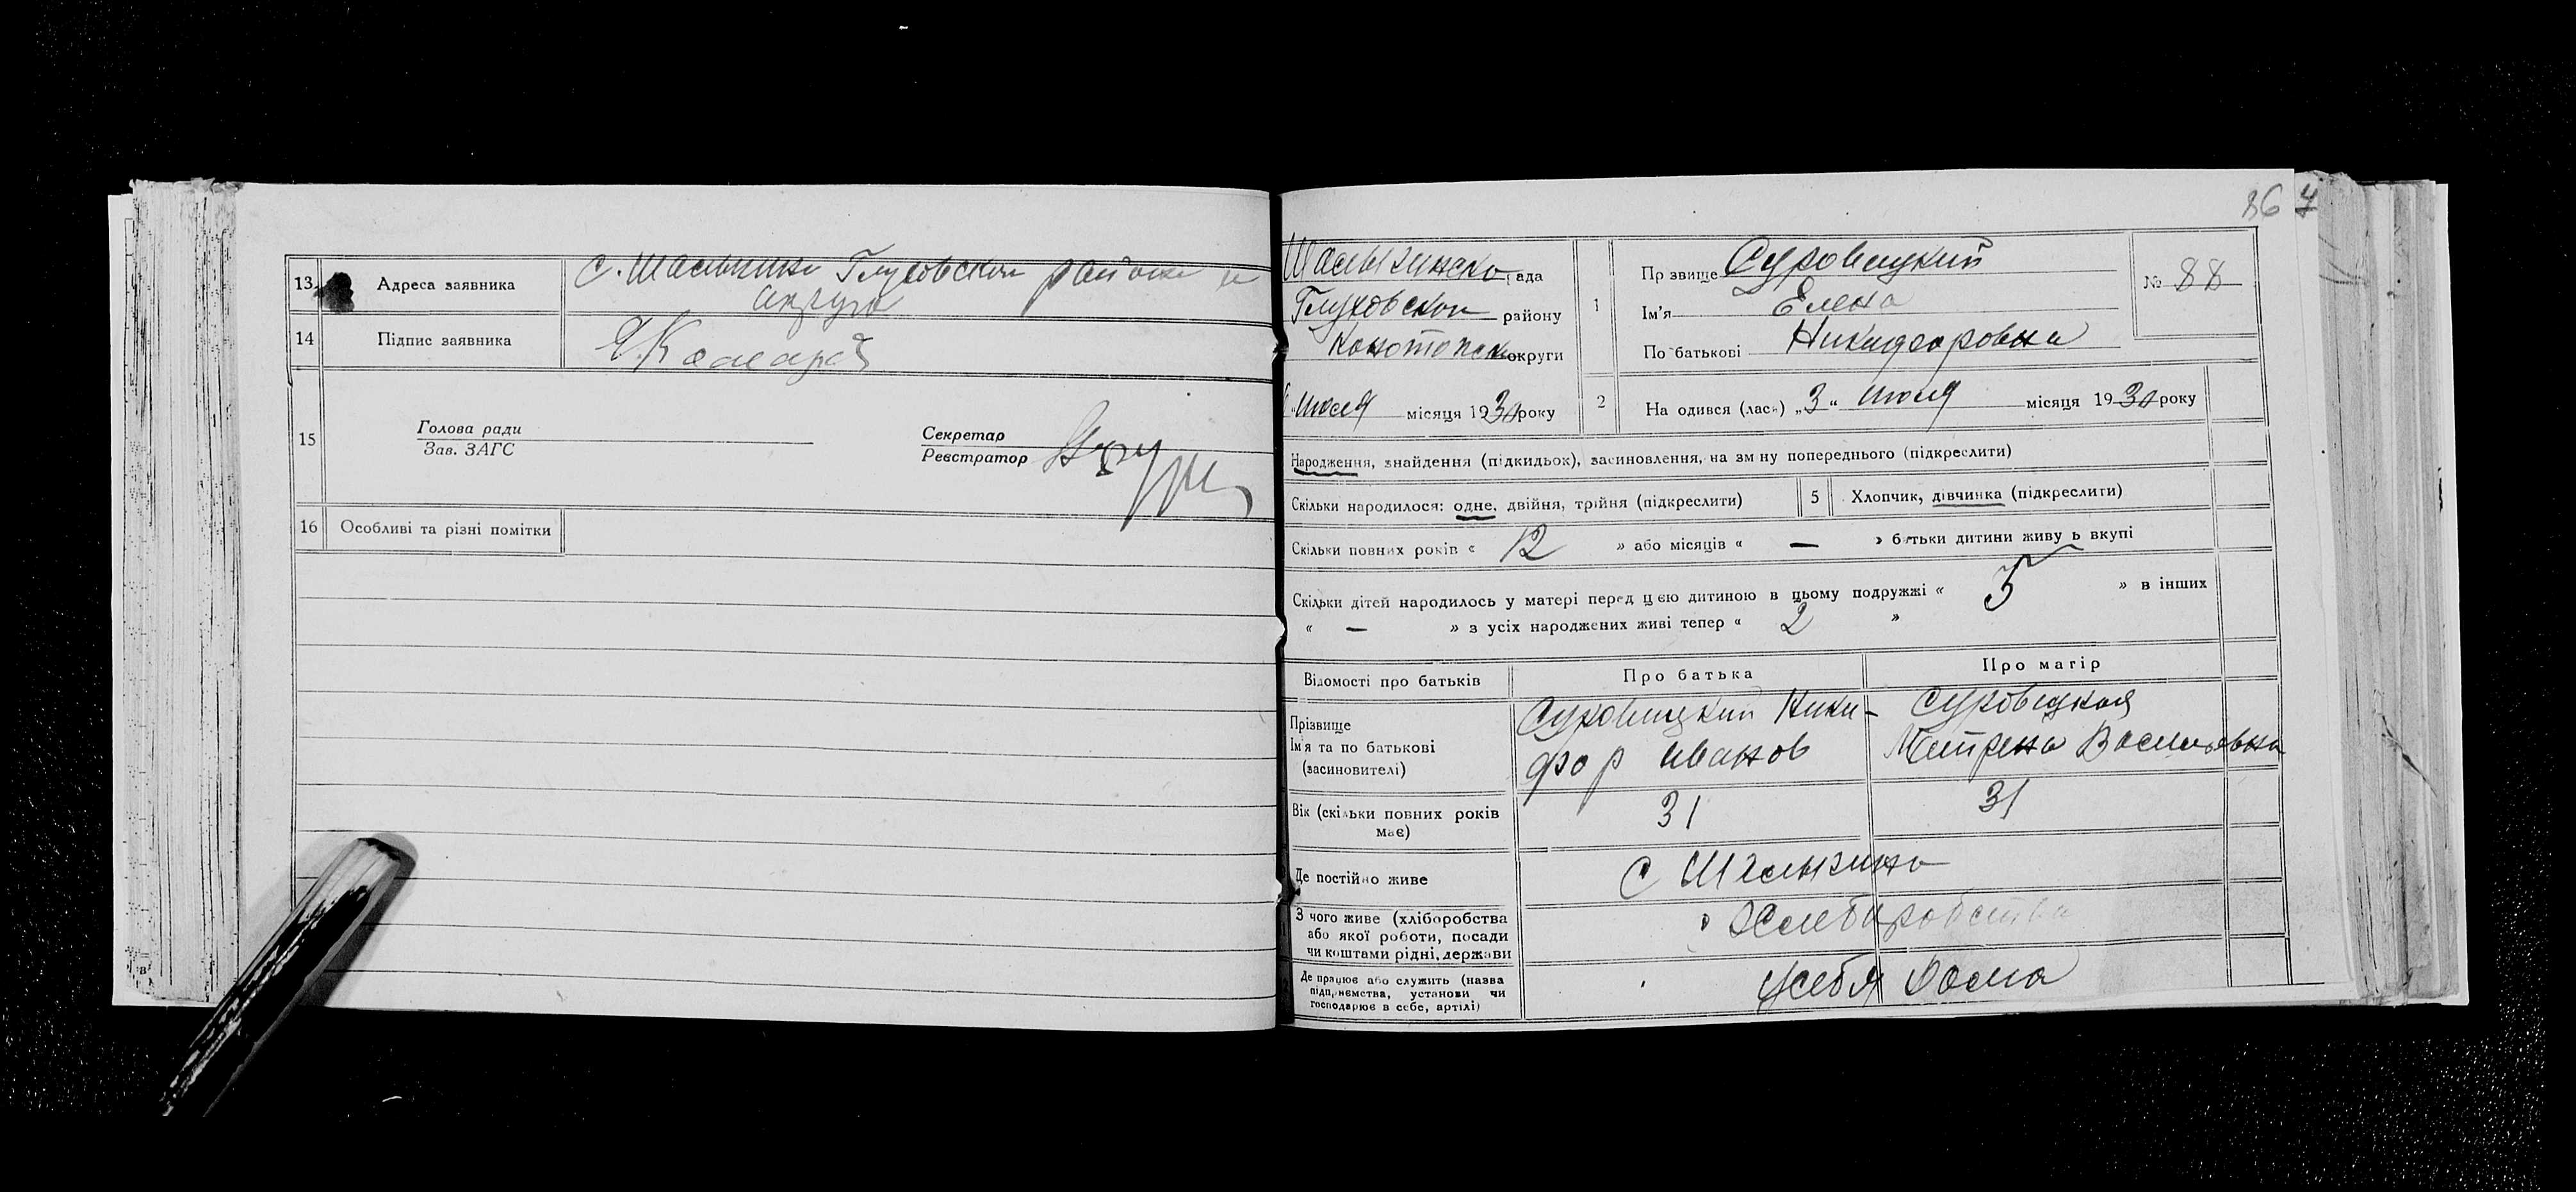 13 Адреса заявника С. Шалыгино Глуховского района и
округа
14 Підпис заявника
15 Голова ради
Зав. ЗАГС
Секретар
Реєстратор
16 Особливі та різні помітки
86
Шалыгинско рада
Глуховского району
Конотопск округи
Июля місяця 1930 року
1 Пр звище Суровицкий
Ім’я Елена
По батькові Никифоровна
№ 88
2 На одився (лась) „3“ июля місяця 1930 року
Народження, знайдення (підкидьок), засиновлення, на зм ну попереднього (підкреслити)
Скільки народилося: одне, двійня, трійня (підкреслити) 5 Хлопчик, дівчинка (підкреслити)
Скільки повних років « 12 » або місяців « — » батьки дитини живу ь вкупі
Скільки дітей народилось у матері перед цєю дитиною в цьому подружжі « 5 » в інших
« — » з усіх народжених живі тепер « 2 »
Відомості про батьків Про батька Про матір
Прізвище
Ім’я та по батькові
(засиновителі)
Суровицкий Ники-
фор Иванов
Суровицкая
Матрена Васильевна
Вік (скільки повних років
має)
31 31
Де постійно живе С Шалыгино
З чого живе (хліборобства
або якої роботи, посади
чи коштами рідні, держави
Хлеборобства
Де працює або служить (назва
підприємства, установи чи
господарює в себе, артілі)
у себя дома